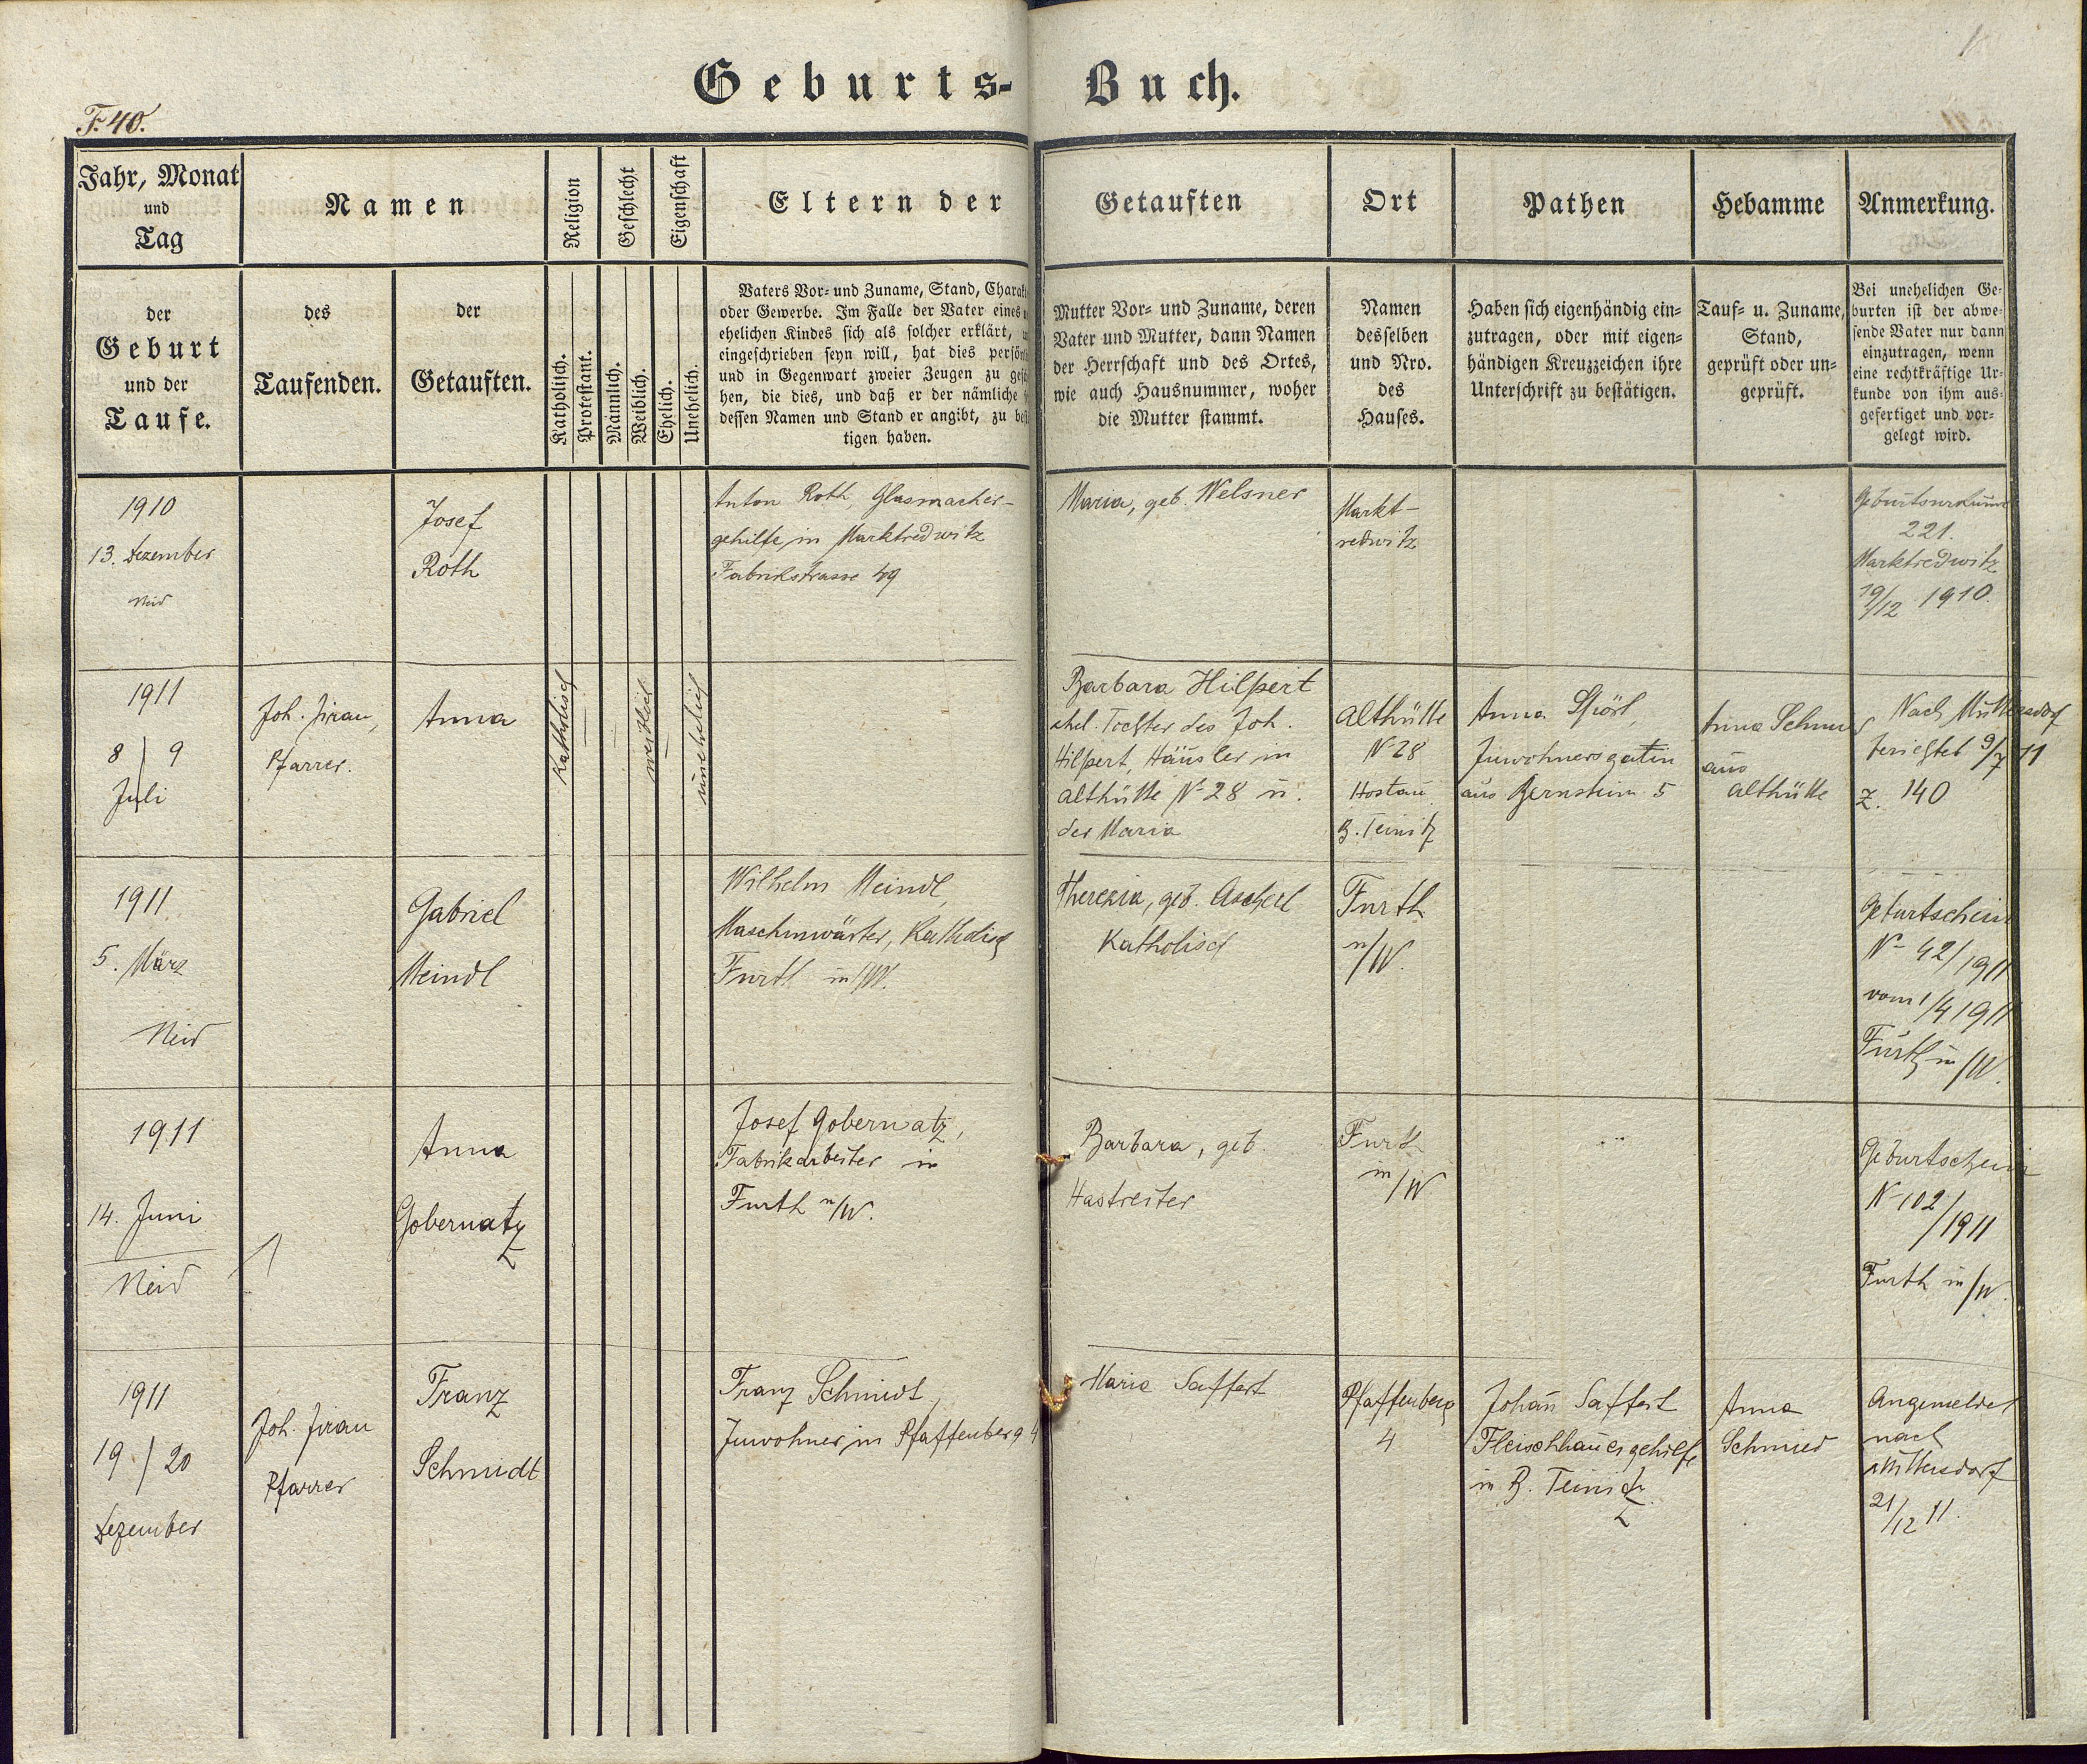 Geburts-Buch.
F. 40.
Jahr, Monat
und
Tag
Namen
Religion
Geschlecht
Eigenschaft
Eltern der
Getauften
Ort
Pathen
Hebamme
Anmerkung.
der
Geburt
und der
Taufe.
des
Taufenden.
der
Getauften.
Katholisch.
Protestant.
Männlich.
Weiblich.
Ehelich.
Unehelich.
Vaters Vor- und Zuname, Stand, Charak
oder Gewerbe. Im Falle der Vater eines
ehelichen Kindes sich als solcher erklärt,
eingeschrieben seyn will, hat dies persön
und in Gegenwart zweier Zeugen zu ges
hen, die dies, und daß er der nämliche
dessen Namen und Stand er angibt, zu be
tigen haben.
Mutter Vor- und Zuname, deren
Vater und Mutter, dann Namen
der Herrschaft und des Ortes,
wie auch Hausnummer, woher
die Mutter stammt.
Namen
desselben
und Nro.
des
Hauses.
Haben sich eigenhändig ein-
zutragen, oder mit eigen-
händigen Kreuzzeichen ihre
Unterschrift zu bestätigen.
Tauf- u. Zuname,
Stand,
geprüft oder un-
geprüft.
Bei unehelichen Ge-
burten ist der abwe-
sende Vater nur dann
einzutragen, wenn
eine rechtkräftige Ur-
kunde von ihm aus-
gefertiget und vor-
gelegt wird.
1910
13. Dezember
Josef
Roth
Anton Roth, Glasmacher-
gehilfe, in Marktredwitz
Fabrikstrasse 49
Maria, geb. Welsner
Markt-
redwitz
221.
Marktredwitz
19/12 1910.
1911
8/9
Juli
Joh. Jirau,
Pfarrer.
Anna
Katholisch
weiblich
unehelich
Barbara Hilpert
ehel. Tochter des Joh.
Hilpert, Häusler in
Althütte N- 28 u.
der Maria
Althütte
N- 28
Hostau
B. Teinitz
Anna Spörl,
Inwohnersgatin
aus Bernstein 5
Anna
aus
Althütte
Nach Muttersdorf
berichtet 9/7 11
Z. 140
1911
5. März
Gabriel
Meindl
Wilhelm Meindl,
Maschinwärter, Katholisch
Furth in/W.
Theresia, geb.
Katholisch
Furth
in/W.
Geburtschein
N- 42/1911
vom 1/4 1911
Furth in/W.
1911
14. Juni
Anna
Gobernatz
Josef Gobernatz,
Fabrikarbeiter in
Furth in/W.
Barbara, geb.
Hastreiter
Furth
in/W
Geburtschein
N- 102/1911
Furth in/W.
1911
19/20
Dezember
Joh. Jirau
Pfarrer
Franz
Schmidt
Franz Schmidt,
Inwohner, in Pfaffenberg 4
Maria Saffert
Pfaffenberg
4
Johan̄ Saffert
Fleischhauergehilfe
in B. Teinitz
Anna
Schmied
Angemeldet
nach
Muttersdorf
21/12 11.